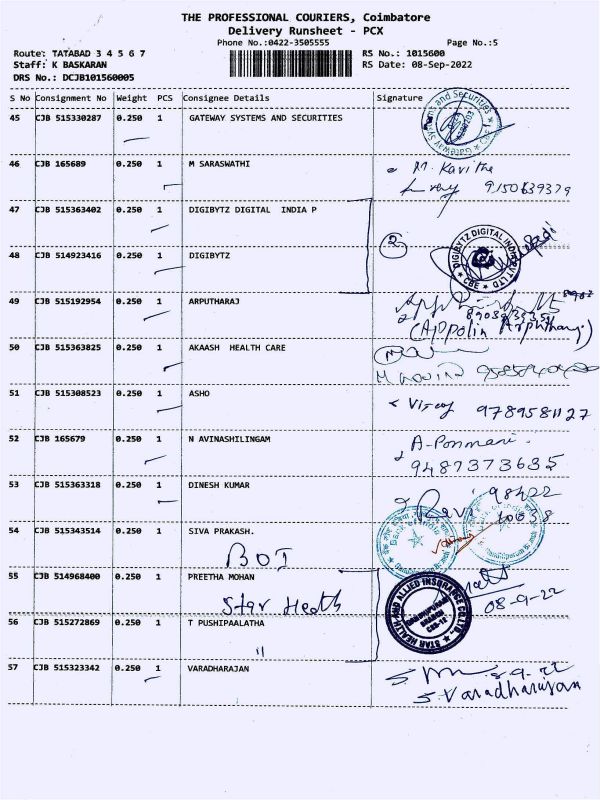 THE PROFESSIONAL COURIERS, Coimbatore
Delivery Runsheet - PCX
Phone No.:0422-3505555 Page No.:5
Route: TATABAD 3 4 5 6 7 RS No.: 1015600
Staff: K BASKARAN RS Date: 08-Sep-2022
DRS No.: DCJB101560005
S No Consignment No Weight PCS Consignee Details Signature
45 CJB 515330287 0.250 1 GATEWAY SYSTEMS AND SECURITIES
46 CJB 165689 0.250 1 M SARASWATHI M. Kavitha
9150639379
47 CJB 515363402 0.250 1 DIGIBYTZ DIGITAL INDIA P
2
DIGIBYTZ DIGITAL INDIA PVT LTD
CBE
48 CJB 514923416 0.250 1 DIGIBYTZ
49 CJB 515192954 0.250 1 ARPUTHARAJ
50 CJB 515363825 0.250 1 AKAASH HEALTH CARE
51 CJB 515308523 0.250 1 ASHO
9789581127
52 CJB 165679 0.250 1 N AVINASHILINGAM A-Ponmani
9487373635
53 CJB 515363318 0.250 1 DINESH KUMAR Ravi 98422
54 CJB 515343514 0.250 1 SIVA PRAKASH.
BOI
Bank of India
55 CJB 514968400 0.250 1 PREETHA MOHAN
Star Health
08-9-22
STAR HEALTH AND ALLIED INSURANCE CO.LTD.
56 CJB 515272869 0.250 1 T PUSHIPAALATHA
"
57 CJB 515323342 0.250 1 VARADHARAJAN
S.Varadharajan